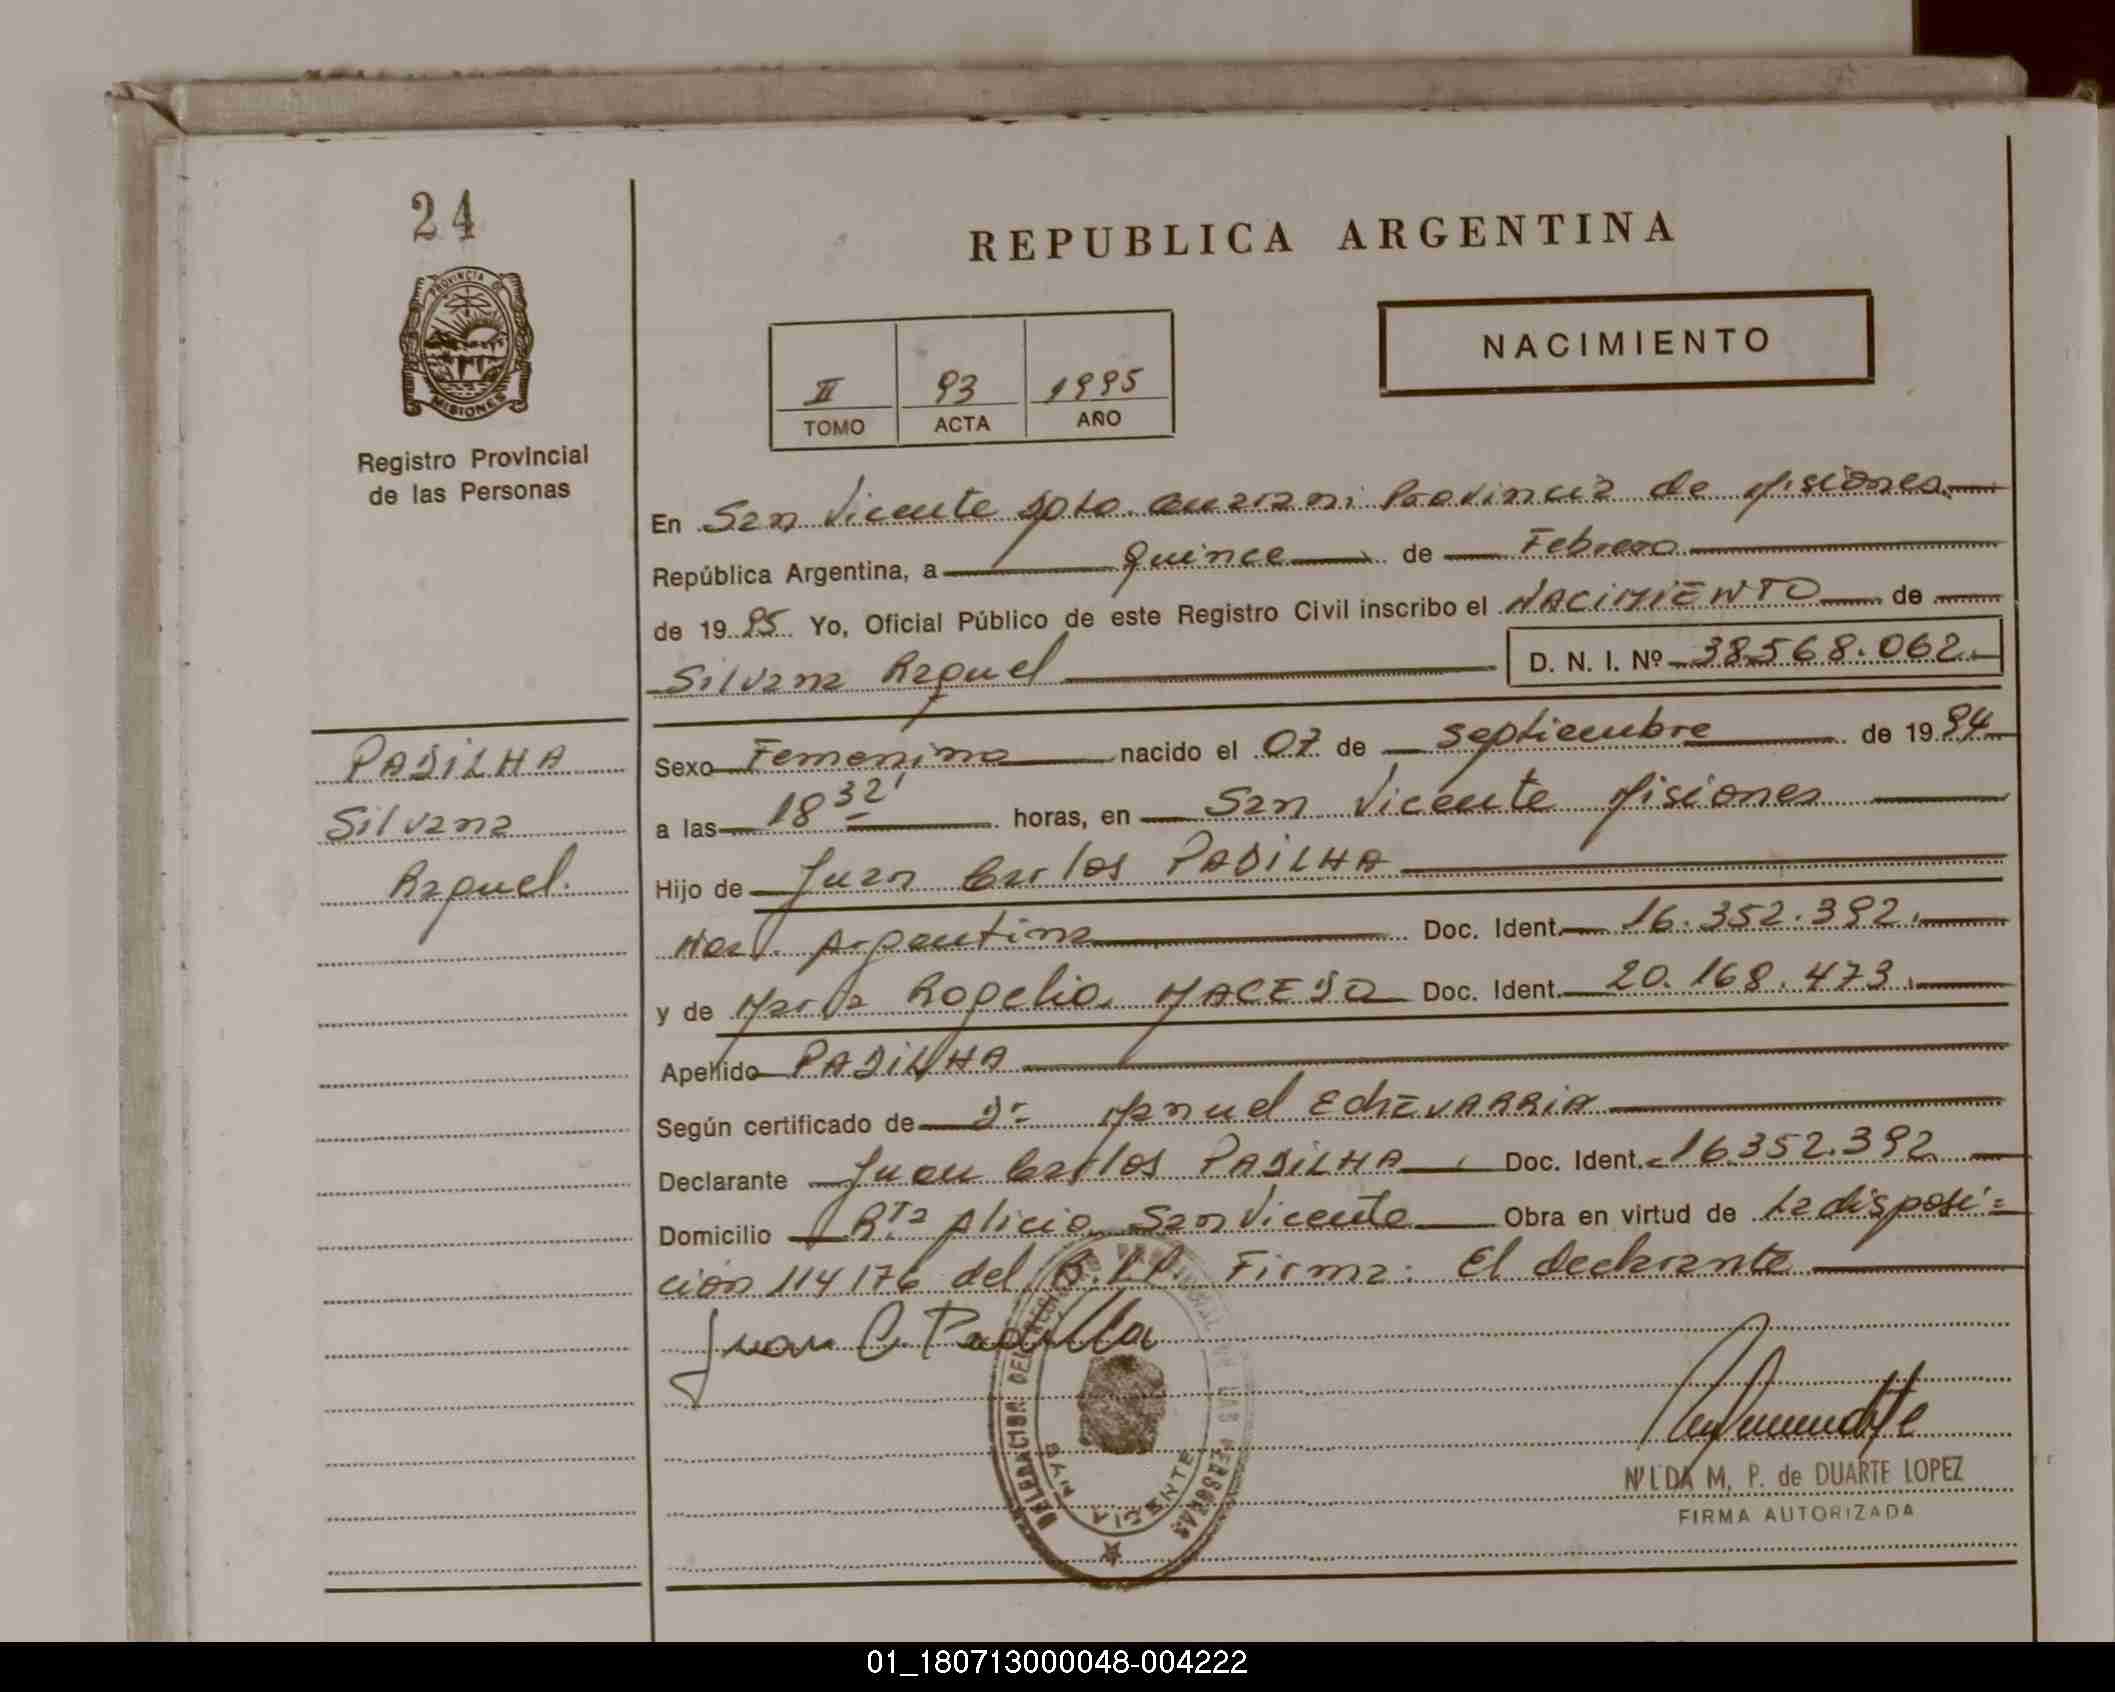 24
PROVINCIA DE
MISIONES
Registro Provincial
de las Personas
REPUBLICA ARGENTINA
NACIMIENTO
II 93 1995
TOMO ACTA AÑO
En San Vicente Dpto. Guarani Provincia de Misiones.
República Argentina, a Quince de Febrero
de 1995. Yo, Oficial Público de este Registro Civil inscribo el NACIMIENTO de
Silvana Raquel D. N. I. Nº 38568.062.
PADILHA
Silvana
Raquel.
Sexo Femenino nacido el 07 de Septiembre de 1994
a las 18 32' horas, en San Vicente Misiones
Hijo de Juan Carlos PADILHA
Nac. Argentina Doc. Ident. 16.352.392.
y de Maria Rogelia MACEDO Doc. Ident. 20.168.473.
Apellido PADILHA
Según certificado de Dr Manuel EcHEVARRIA
Declarante Juan Carlos PADILHA Doc. Ident. 16.352.392
Domicilio Alicia San Vicente Obra en virtud de La disposi=
ción 114176 del R.P.P. Firma: El declarante
Juan C. Padilla
DELEGACION DEL REGISTRO PROVINCIAL DE LAS PERSONAS
SAN VICENTE
NILDA M. P. de DUARTE LOPEZ
FIRMA AUTORIZADA
01_180713000048-004222